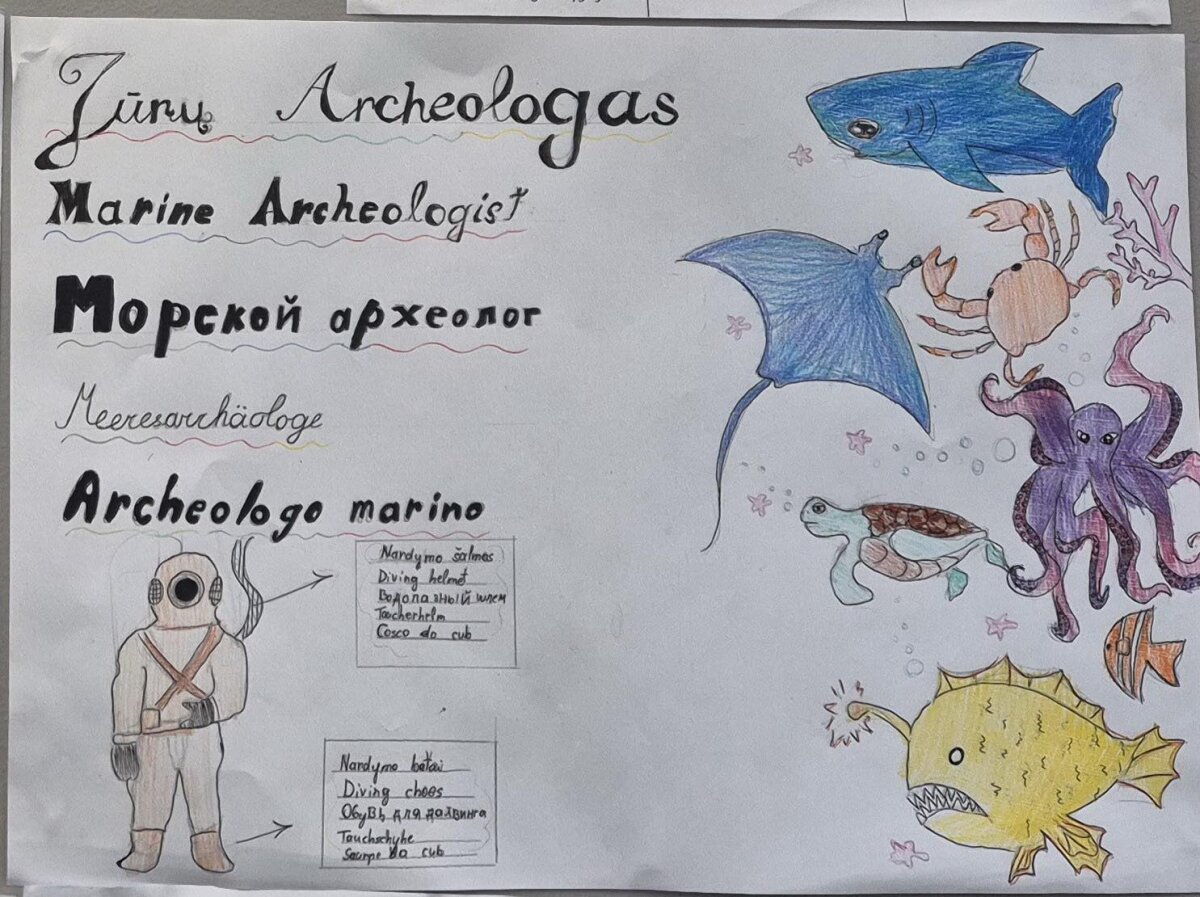 Jūrų Archeologas
Marine Archeologist
Морской археолог
Meeresarchäologe
Archeologo marino
Nardymo šalmas
Diving helmet
Водолазный шлем
Taucherhelm
Cosco da cub
Nardymo batai
Diving choes
Обувь для дайвинга
Tauchschuhe
Scarpe da cub